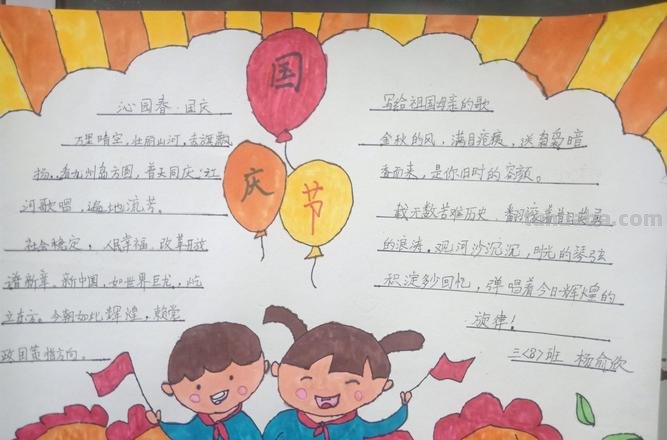 国
庆
节
沁园春·国庆
万里晴空,壮丽山河,去旗飘
扬。看九州岛方圆,普天同庆;江
河歌唱,遍地流芳。
社会稳定,人民幸福,改革开放
谱新章。新中国,如世界巨龙,屹
立东方。今朝如此辉煌,赖党
政国策指方向。
写给祖国母亲的歌
金秋的风,满目疮痍,送着暗
香而来,是你旧时的容颜。
载无数苦难历史,翻滚着
的浪涛。观河沙沉沉,时光的琴弦
积淀多少回忆,弹唱着今日辉煌的
旋律!
三<8>班 杨俞欣